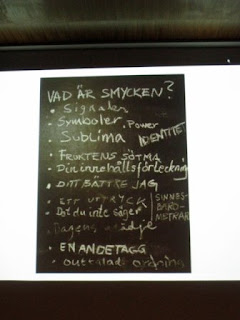 VAD ÄR SMYCKEN?
• Signaler
• Symboler . Power
• SUBLIMA IDENTITET
• FRUKTENS SÖTMA
• Din innehållsförteckning
• DITT BÄTTRE JAG
• ETT UTTRYCK SINNES-
• Det du inte säger BARO-
METRAR
• Dagens glädje
• EN ANDETAGG
• outtalad ordning